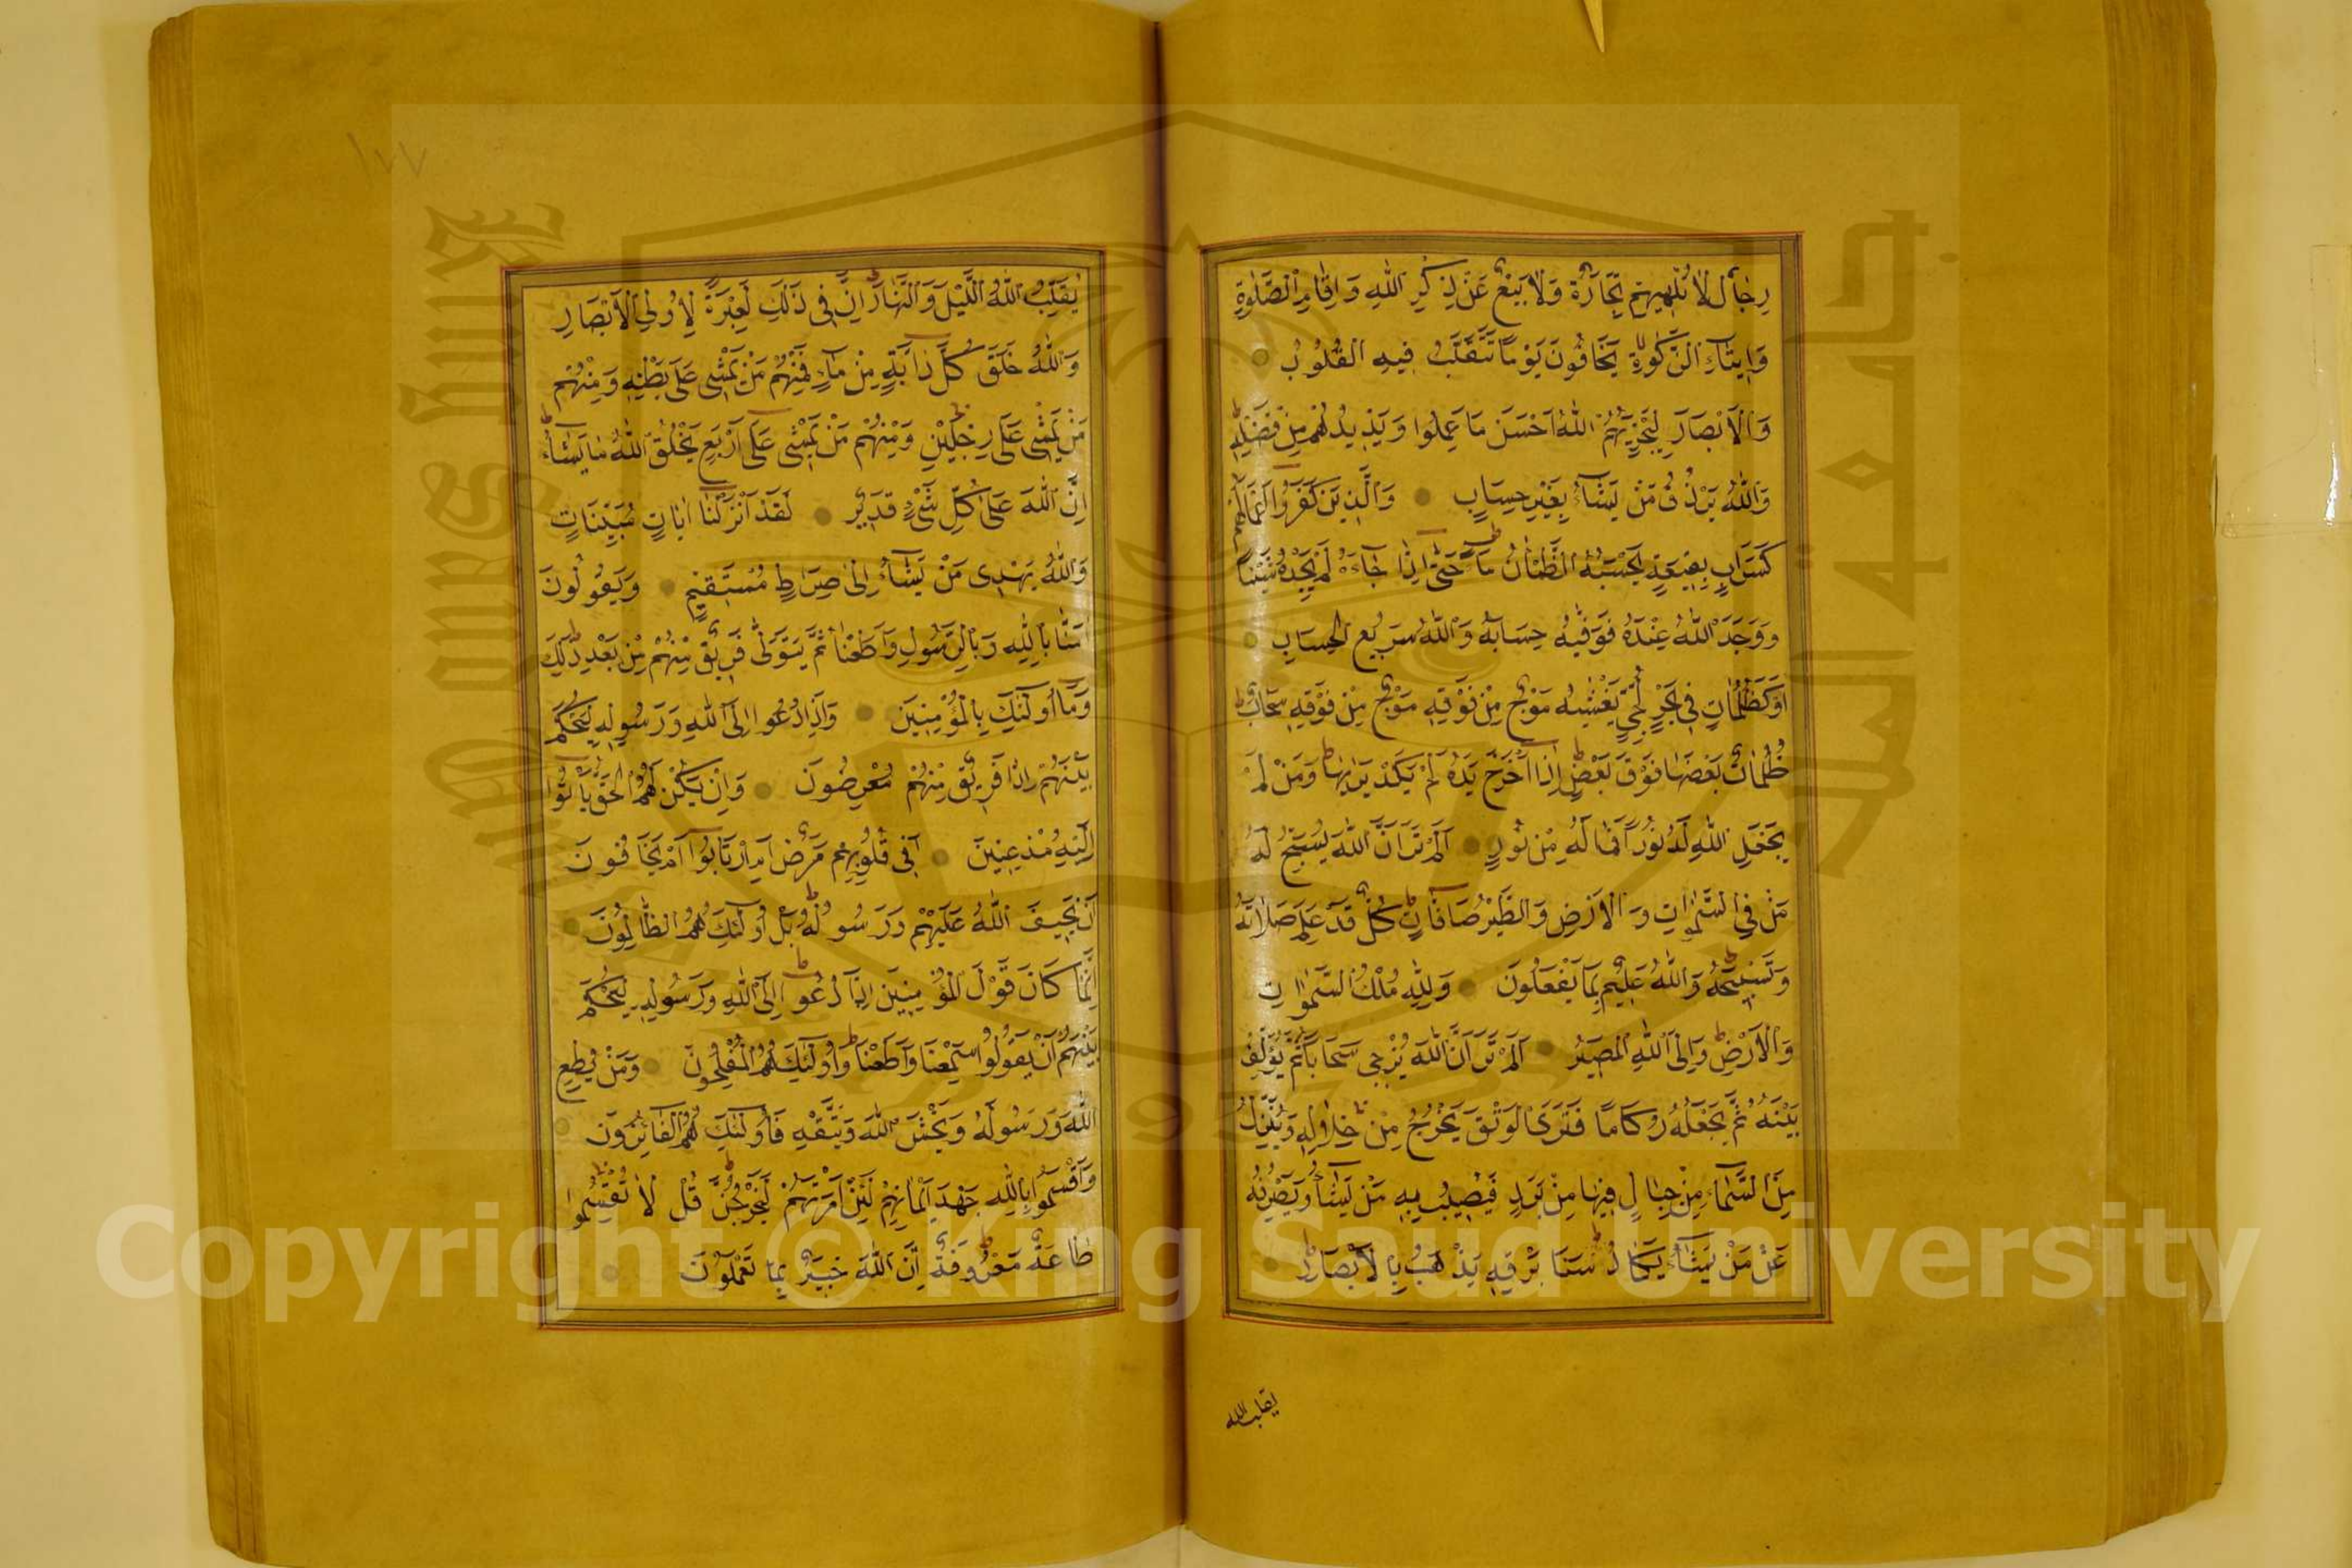 رِجَالٌ لَا تُلْهِيهِمْ تِجَارَةٌ وَلَا بَيْعٌ عَنْ ذِكْرِ اللهِ وَاِقَامِ الصَّلٰوةِ
وَاِيتَاءِ الزَّكٰوةِ يَخَافُونَ يَوْمًا تَتَقَلَّبُ فِيهِ الْقُلُوبُ
وَالْاَبْصَارَ لِيَجْزِيَهُمُ اللهُ اَحْسَنَ مَا عَمِلُوا وَيَزِيدُهُمْ مِنْ فَضْلِهِ
وَاللهُ يَرْزُقُ مَنْ يَشَاءُ بِغَيْرِ حِسَابٍ وَالَّذِينَ كَفَرُوا اَعْمَالُهُمْ
كَسَرَابٍ بِقِيعَةٍ يَحْسَبُهُ الظَّمْاٰنُ مَاءً حَتّٰى اِذَا جَاءَهُ لَمْ يَجِدْهُ شَيْئًا
وَوَجَدَ اللهُ عِنْدَهُ فَوَفّٰيهُ حِسَابَهُ وَاللهُ سَرِيعُ الْحِسَابِ
اَوْ كَظُلُمَاتٍ فِي بَحْرٍ لُجِّيٍّ يَغْشٰيهُ مَوْجٌ مِنْ فَوْقِهِ مَوْجٌ مِنْ فَوْقِهِ سَحَابٌ
ظُلُمَاتٌ بَعْضُهَا فَوْقَ بَعْضٍ اِذَا اَخْرَجَ يَدَهُ لَمْ يَكَدْ يَرٰيهَا وَمَنْ لَمْ
يَجْعَلِ اللهُ لَهُ نُورًا فَمَا لَهُ مِنْ نُورٍ اَلَمْ تَرَ اَنَّ اللهَ يُسَبِّحُ لَهُ
مَنْ فِي السَّمٰوَاتِ وَالْاَرْضِ وَالطَّيْرُ صَافَّاتٍ كُلٌّ قَدْ عَلِمَ صَلَاتَهُ
وَتَسْبِيحَهُ وَاللهُ عَلِيمٌ بِمَا يَفْعَلُونَ وَلِلّٰهِ مُلْكُ السَّمٰوَاتِ
وَالْاَرْضِ وَاِلَى اللهِ الْمَصِيرُ اَلَمْ تَرَ اَنَّ اللهَ يُزْجِي سَحَابًا ثُمَّ يُؤَلِّفُ
بَيْنَهُ ثُمَّ يَجْعَلُهُ رُكَامًا فَتَرَى الْوَدْقَ يَخْرُجُ مِنْ خِلَالِهِ وَيُنَزِّلُ
مِنَ السَّمَاءِ مِنْ جِبَالٍ فِيهَا مِنْ بَرَدٍ فَيُصِيبُ بِهِ مَنْ يَشَاءُ وَيَصْرِفُهُ
عَنْ مَنْ يَشَاءُ يَكَادُ سَنَا بَرْقِهِ يَذْهَبُ بِالْاَبْصَارِ
يقلب الله
١٧٧
يُقَلِّبُ اللهُ اللَّيْلَ وَالنَّهَارَ اِنَّ فِي ذٰلِكَ لَعِبْرَةً لِاُولِي الْاَبْصَارِ
وَاللهُ خَلَقَ كُلَّ دَابَّةٍ مِنْ مَاءٍ فَمِنْهُمْ مَنْ يَمْشِي عَلٰى بَطْنِهِ وَمِنْهُمْ
مَنْ يَمْشِي عَلٰى رِجْلَيْنِ وَمِنْهُمْ مَنْ يَمْشِي عَلٰى اَرْبَعٍ يَخْلُقُ اللهُ مَا يَشَاءُ
اِنَّ اللهَ عَلٰى كُلِّ شَيْءٍ قَدِيرٌ لَقَدْ اَنْزَلْنَا اٰيَاتٍ مُبَيِّنَاتٍ
وَاللهُ يَهْدِي مَنْ يَشَاءُ اِلٰى صِرَاطٍ مُسْتَقِيمٍ وَيَقُولُونَ
اٰمَنَّا بِاللهِ وَبِالرَّسُولِ وَاَطَعْنَا ثُمَّ يَتَوَلّٰى فَرِيقٌ مِنْهُمْ مِنْ بَعْدِ ذٰلِكَ
وَمَا اُولٰئِكَ بِالْمُؤْمِنِينَ وَاِذَا دُعُوا اِلَى اللهِ وَرَسُولِهِ لِيَحْكُمَ
بَيْنَهُمْ اِذَا فَرِيقٌ مِنْهُمْ مُعْرِضُونَ وَاِنْ يَكُنْ لَهُمُ الْحَقُّ يَأْتُوا
اِلَيْهِ مُذْعِنِينَ اَفِي قُلُوبِهِمْ مَرَضٌ اَمِ ارْتَابُوا اَمْ يَخَافُونَ
اَنْ يَحِيفَ اللهُ عَلَيْهِمْ وَرَسُولُهُ بَلْ اُولٰئِكَ هُمُ الظَّالِمُونَ
اِنَّمَا كَانَ قَوْلَ الْمُؤْمِنِينَ اِذَا دُعُوا اِلَى اللهِ وَرَسُولِهِ لِيَحْكُمَ
بَيْنَهُمْ اَنْ يَقُولُوا سَمِعْنَا وَاَطَعْنَا وَاُولٰئِكَ هُمُ الْمُفْلِحُونَ وَمَنْ يُطِعِ
اللهَ وَرَسُولَهُ وَيَخْشَ اللهَ وَيَتَّقْهِ فَاُولٰئِكَ هُمُ الْفَائِزُونَ
وَاَقْسَمُوا بِاللهِ جَهْدَ اَيْمَانِهِمْ لَئِنْ اَمَرْتَهُمْ لَيَخْرُجُنَّ قُلْ لَا تُقْسِمُوا
طَاعَةٌ مَعْرُوفَةٌ اِنَّ اللهَ خَبِيرٌ بِمَا تَعْمَلُونَ
Copyright © King Saud University